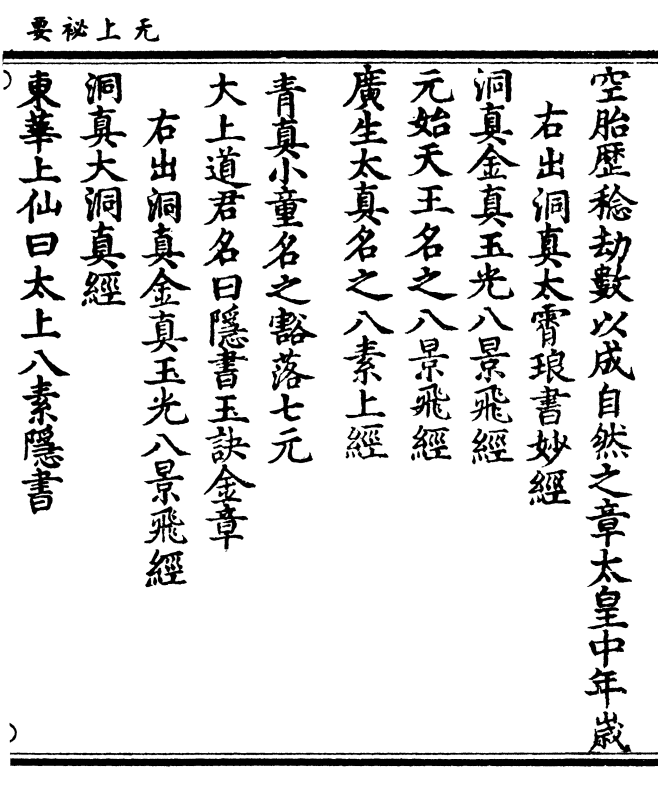 无上祕要
空胎歷稔劫數以成自然之章太皇中年歲
右出洞真太霄琅書妙經
洞真金真玉光八景飛經
元始天王名之八景飛經
廣生太真名之八素上經
青真小童名之豁落七元
大上道君名曰隱書玉訣金章
右出洞真金真玉光八景飛經
洞真大洞真經
東華上仙曰太上八素隱書